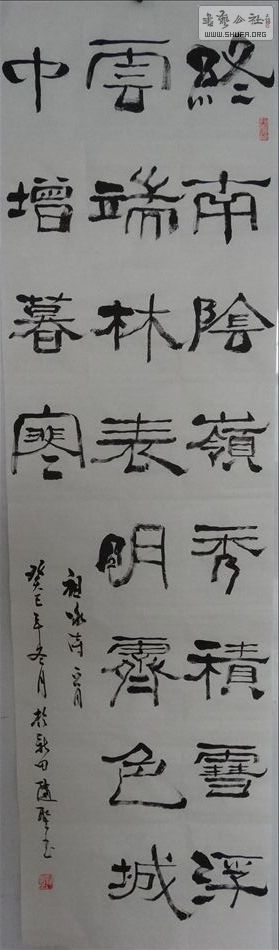 終南陰嶺秀積雪浮
雲端林表明霽色城
中增暮寒
祖咏诗
癸巳年冬月於
書藝公社
WWW.SHUFA.ORG